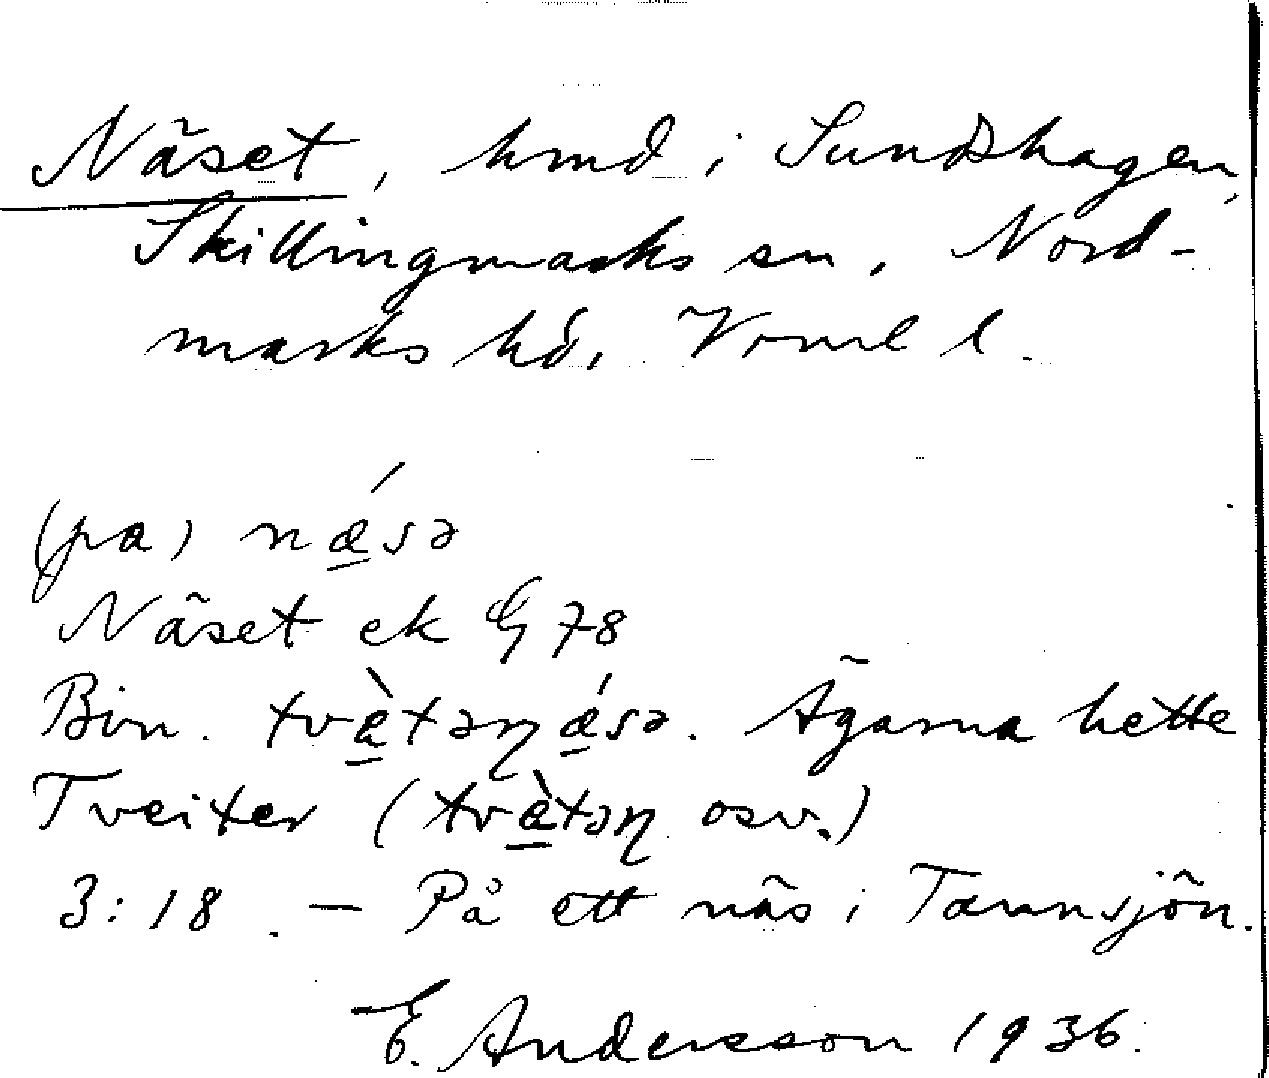 Näset, hmd i Sundshagen,
Skillingmarks sn, Nord-
marks hd, Vrml l.
(pa) nǽ̠sə
Näset ek G 78
Bin. tvæ̠̀təɳǽ̠sə. Ägarna hette
Tveiter (tvæ̠̀təɳ osv.)
3:18. – På ett näs i Tannsjön.
E. Andersson 1936.